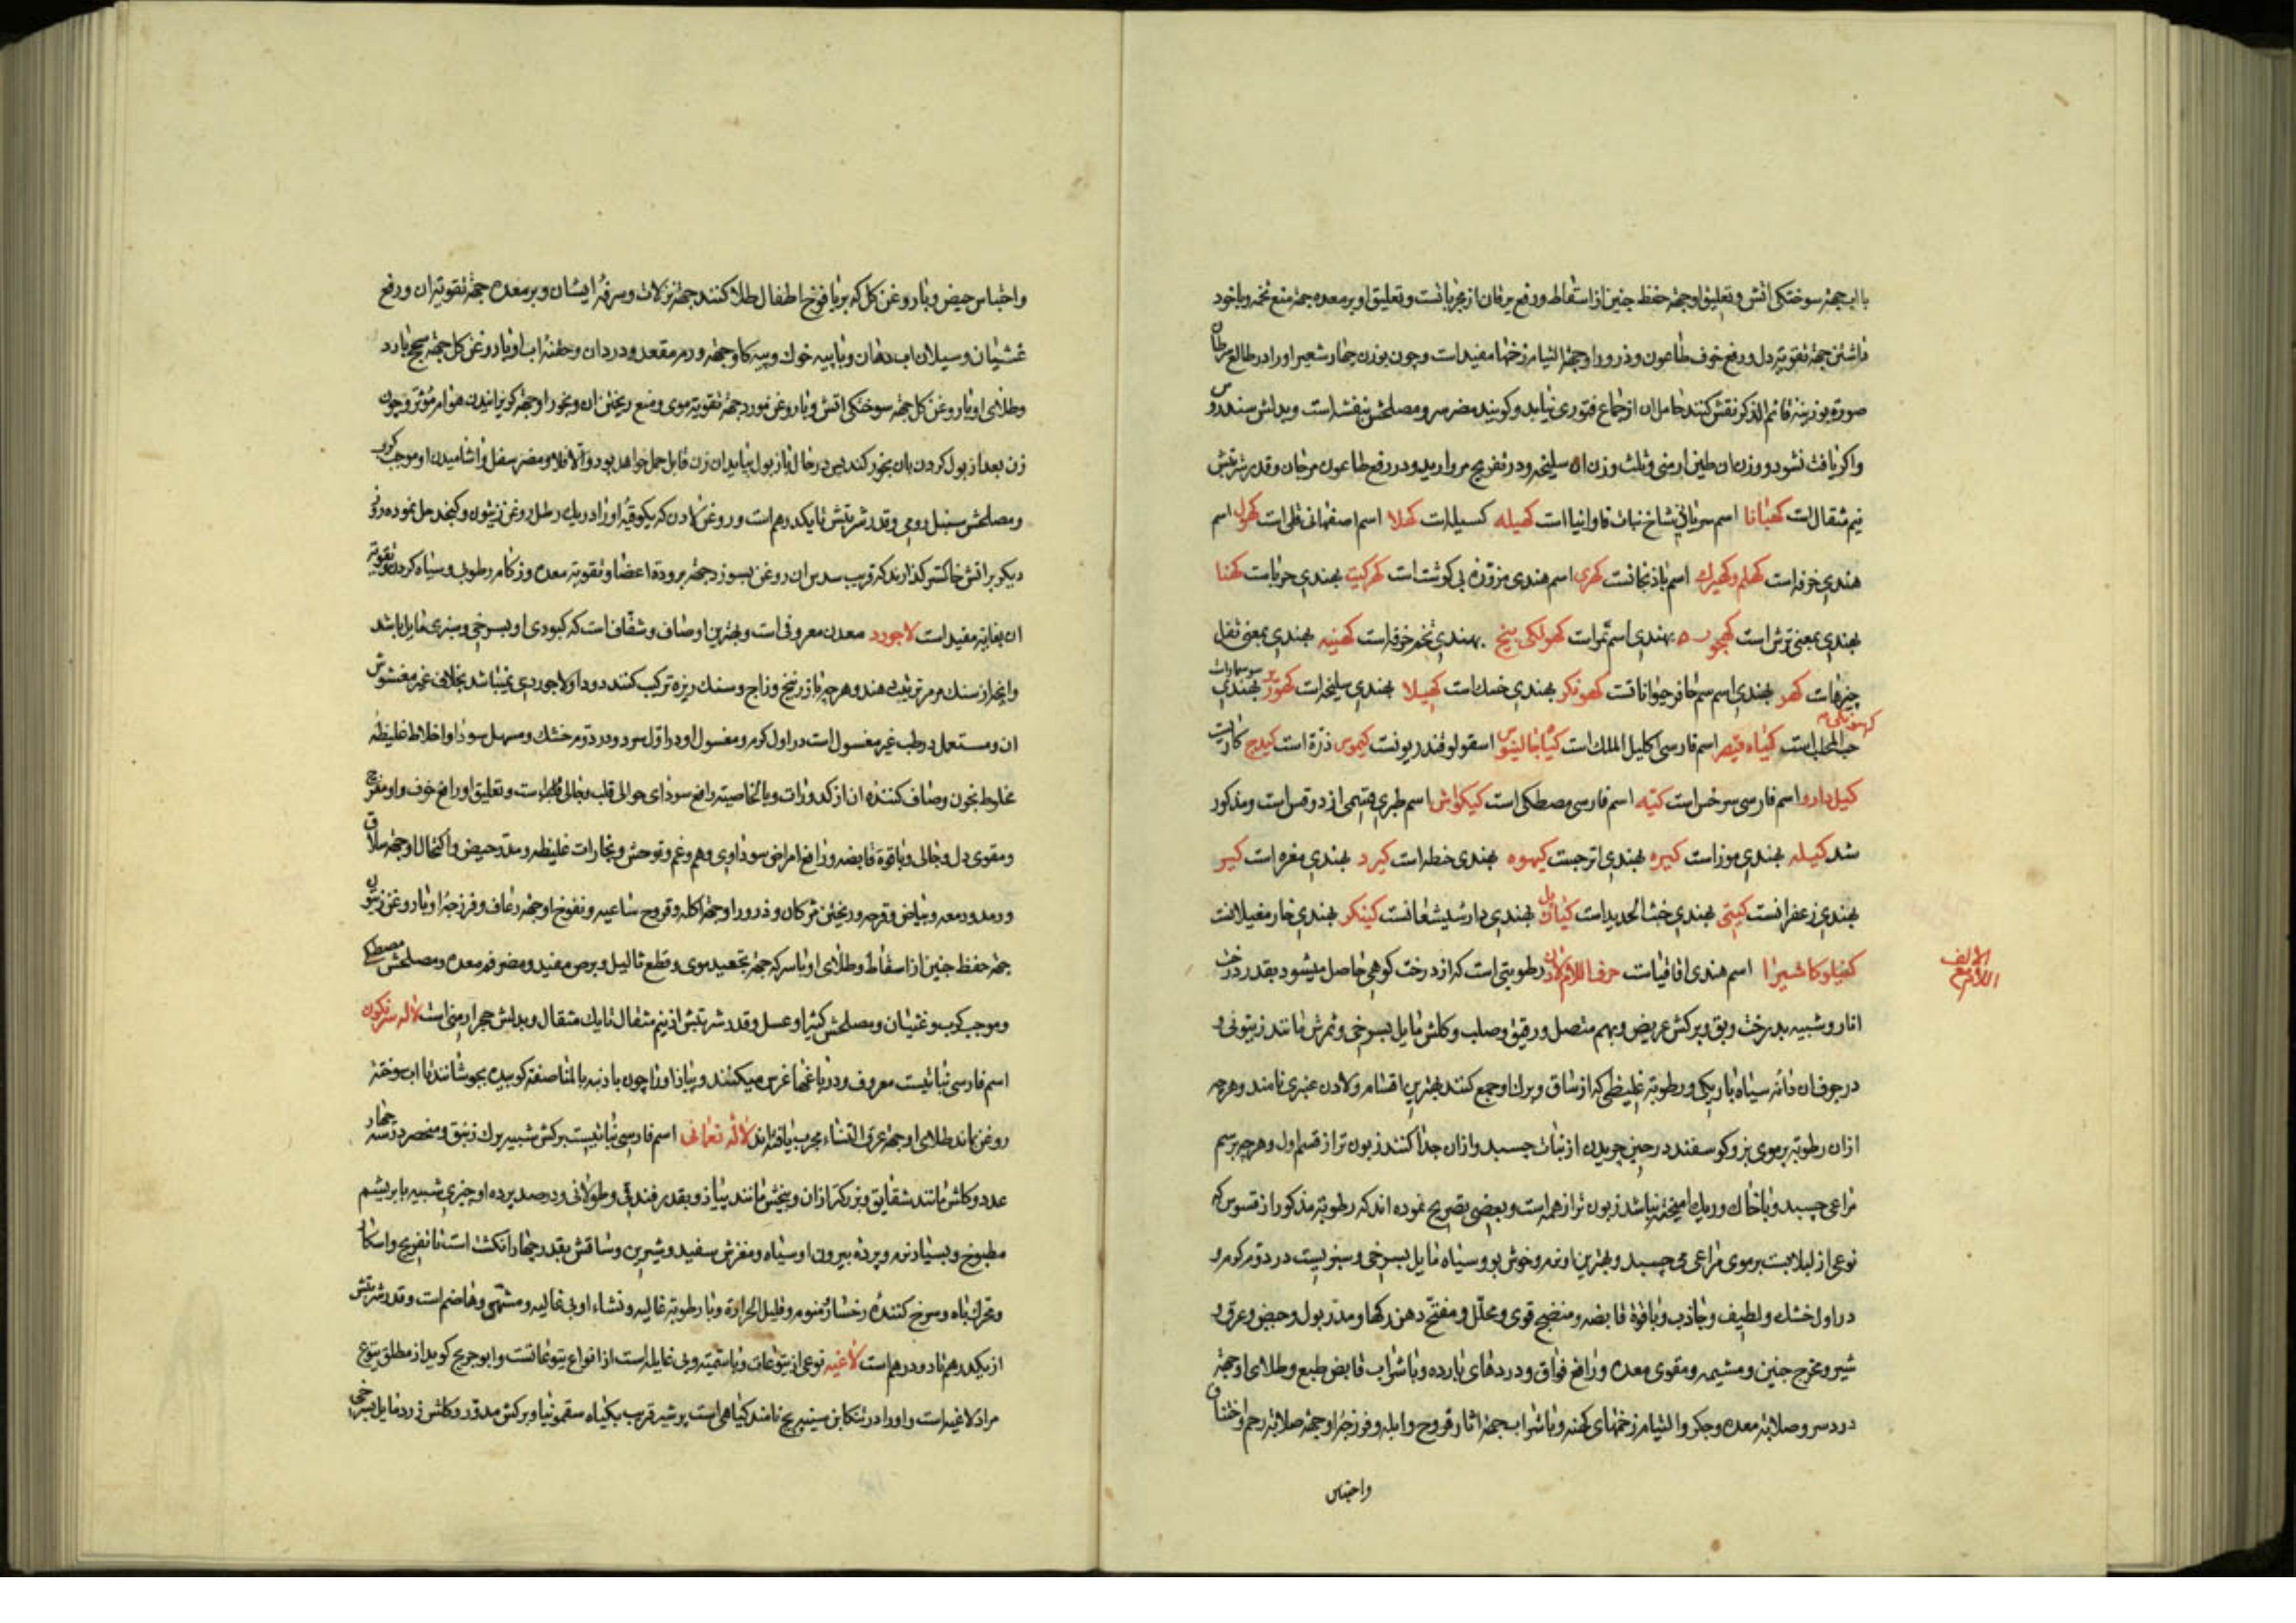 بااب جهة سوختکی اتش و تعلیق او جهة حفظ جنین از اسقاط و رفع یرقان از مجرباتست و تعلیق او بر معده جهة منع تخمه و باخود
داشتن جهة تقویة دل و رفع خوف طاعون و ذرور او جهة التیام زخمها مفید است و چون بوزن چهار شعیر او را در طالع سرطان
صورة بوزینه قائم الذکر نقش کنند حامل ان از جماع فتوری نیابد و کویند مضر سر و مصلحش بنفشه است و بدلش سندروس
و اکر یافت نشود دو وزن ان طین ارمنی و ثلث وزن ان سلیخه و در تفریح مروارید و در رفع طاعون مرجان و قدر شربتش
نیم مثقال است کهیانا اسم سریانی شاخ نبات فاوانیا است کهیله کسیله است کهلا اسم اصفهانی قلی است کهول اسم
هندی خرفه است کهلم و کهیرك اسم باذنجانست کهری اسم هندی مزوّره بی کوشت است کهرکیت بهندی حرباست کهتا
بهندی بمعنی ترش است کهجور بهندی اسم تمر است کهولکی بیخ بهندی تخم خرفه است کهنیه بهندی بمعنی ثفل
چیزهاست کهر بهندی اسم سم حافر حیواناتست کهونکر بهندی خسك است کهیلا بهندی سلیخه است کهورّ بهندی
حب المحلب است کیاه قیصر اسم فارسی اکلیل الملك است کیاجالینوس اسقولوقندریونست کیموس ذرّة است کیدج کادیست
کیل دارو اسم فارسی سرخس است کیّه اسم فارسی مصطکی است کیکواش اسم طبری قسمی از دوقس است و مذکور
شد کیله بهندی موز است کیره بهندی اترجست کیهوه بهندی حنطه است کیرد بهندی مغره است کیر
بهندی زعفرانست کیتی بهندی خبث الحدید است کیاریل بهندی دارشیشعانست کینکر بهندی خار مغیلانست
کفیلو کاشیرا اسم هندی اقاقیاست حرف اللام لادن رطوبتی است که از درخت کوهی حاصل میشود بقدر درخت
الالف
اللام مع
انار و شبیه بدرخت و بق و برکش عریض و بهم متصل و رقیق و صلب و کلش مایل بسرخی و ثمرش مانند زیتونی و
در جوف ان دانه سیاه باریکی و رطوبة غلیظی که از ساق و برك او جمع کنند بهترین اقسام و لادن عنبری نامند و هرچه
ازان رطوبة بر موی بز و کوسفند در حین چریدن از نبات چسبد و ازان جدا کنند زبون تر از قسم اول و هرچه بر سم
مراعی چسبد و با خاك و ریك امیخته باشد زبون تر از همه است و بعضی تصریح نموده اند که رطوبة مذکور از قسوس که
نوعی از لبلابست بر موی مراعی می چسبد و بهترین او نرم و خوش بو و سیاه مایل بسرخی و سبزیست در دوّم کرم و
در اول خشك و لطیف و جاذب و باقوة قابضه و منضج قوی و محلّل و مفتّح دهن رکها و مدر بول و حیض و عرق و
شیر و مخرج جنین و مشیمه و مقوی معده و رافع فواق و دردهای بارده و باشراب قابض طبع و طلای او جهة
درد سر و صلابة معده و جکر و التیام زخمهای کهنه و باشراب جهة اثار قروح و ابله و فرزجهٔ او جهة صلابة رحم و اختناق
و احتباس
و احتباس حیض و با روغن کل که بر یافوخ اطفال طلا کنند جهة نزلات و سرفهٔ ایشان و بر معده جهة تقویة ان و رفع
غشیان و سیلان اب دهان و با پیه خوك و پیه کاو جهة ورم مقعد و درد ان و حقنهٔ اب او با روغن کل جهة سحج بارد
و طلای او با روغن کل جهة سوختکی اتش و با روغن مورد جهة تقویة موی و منع ریختن ان و بخور او جهة کریزانیدن هوام مؤثر و چون
زن بعد از بول کردن بان بخور کند پس در حال باز بول نماید ان زن قابل حمل خواهد بود و الا فلا و مضر سفل و اشامیدن او موجب کرب
و مصلحش سنبل رومی و قدر شربتش تا یکدرهم است و روغن لادن که یکوقیه او را در یك رطل روغن زیتون و کنجد حل نموده در
دیکر بر اتش خاکستر کذارند که قریب سدس ان روغن بسوزد جهة برودة اعضا و تقویة معده و زکام رطوبی و سیاه کردن و تقویة
ان بغایة مفید است لاجورد معدن معروفی است و بهترین او صاف و شفاف است که کبودی او بسرخی و سبزی مایل باشد
و انچه از سنك مرمر ترتیب دهند و هرچه از زرنیخ و زاج و سنك ریزه ترکیب کنند دود او لاجوردی نمیباشد بخلاف غیر مغشوش
ان و مستعمل در طب غیر مغسول است در اول کرم و مغسول او در اوّل سرد و در دوّم خشك و مسهل سودا و اخلاط غلیظه
مخلوط بخون و صاف کننده ان از کدورات و بالخاصیة رافع سودای حوالی قلب و جالی است و تعلیق او رافع خوف و او مفرّح
و مقوی دل و جالی و باقوة قابضه و رافع امراض سوداوی و هم و غم و توحش و بخارات غلیظه و مدر حیض و اکتحال او جهة سلاق
و رمد و دمعه و بیاض و قرحه و ریختن مژکان و ذرور او جهة اکله و قروح ساعیه و نفوخ او جهة رعاف و فرزجهٔ او با روغن زیتون
جهة حفظ جنین از اسقاط و طلای او با سرکه جهة تجعید موی و قطع ثالیل و برص مفید و مضر فم معده و مصلحش مصطکی
و موجب کرب و غثیان و مصلحش کثیرا و عسل و قدر شربتش از نیم مثقال تا یك مثقال و بدلش حجر ارمنی است لاله سرنکون
اسم فارسی نباتیست معروف و در باغها غرس میکنند و پیاز او را چون با دنبه بالمناصفه کوبیده بجوشانند تا اب سوخته
روغن بماند طلای او جهة عرق النساء مجرب یافته اند لاله نعمانی اسم فارسی نباتیست برکش شبیه ببرك زنبق و منحصر در سه چهار
عدد و کلش مانند شقایق و بزرکتر ازان و بیخش مانند پیاز و بقدر فندقی و طولانی و در صد پرده او چیزی شبیه بابریشم
مطبوخ و بسیار نرم و پرده بیرون او سیاه و مغزش سفید و شیرین و ساقش بقدر چهار انکشت است با تفریح و اسکار
و محرك باه و سرخ کننده رخسار و منوم و قلیل الحرارة و با رطوبة غالبه و نشاء او بی غائله و مشتهی و هاضم است و قدر شربتش
از یکدرهم تا دو درهم است لاغیه نوعی از یتوعات و باسمّیة و بی غایله است از انواع یتوعاتست و ابو جریح کوید از مطلق یتوع
مراد لاغیه است و او را در تنکابن سنیبریج نامند کیاهی است پر شیر قریب بکیاه سقمونیا و برکش مدوّر و کلش زرد مایل بسرخی